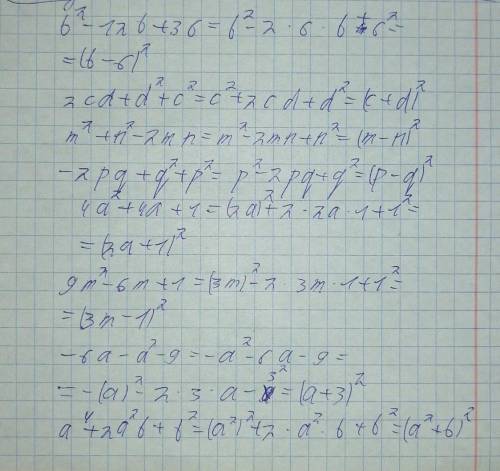 b² - 12b + 36 = b² - 2 · 6 · b + 6² =
= (b - 6)²
2cd + d² + c² = c² + 2cd + d² = (c + d)²
m² + n² - 2mn = m² - 2mn + n² = (m - n)²
-2pq + q² + p² = p² - 2pq + q² = (p - q)²
4a² + 4a + 1 = (2a)² + 2 · 2a · 1 + 1² =
= (2a + 1)²
9m² - 6m + 1 = (3m)² - 2 · 3m · 1 + 1² =
= (3m - 1)²
-6a - a² - 9 = -a² - 6a - 9 =
= -(a)² - 2 · 3 · a - 3² = (a + 3)²
a⁴ + 2a²b + b² = (a²)² + 2 · a² · b + b² = (a² + b)²